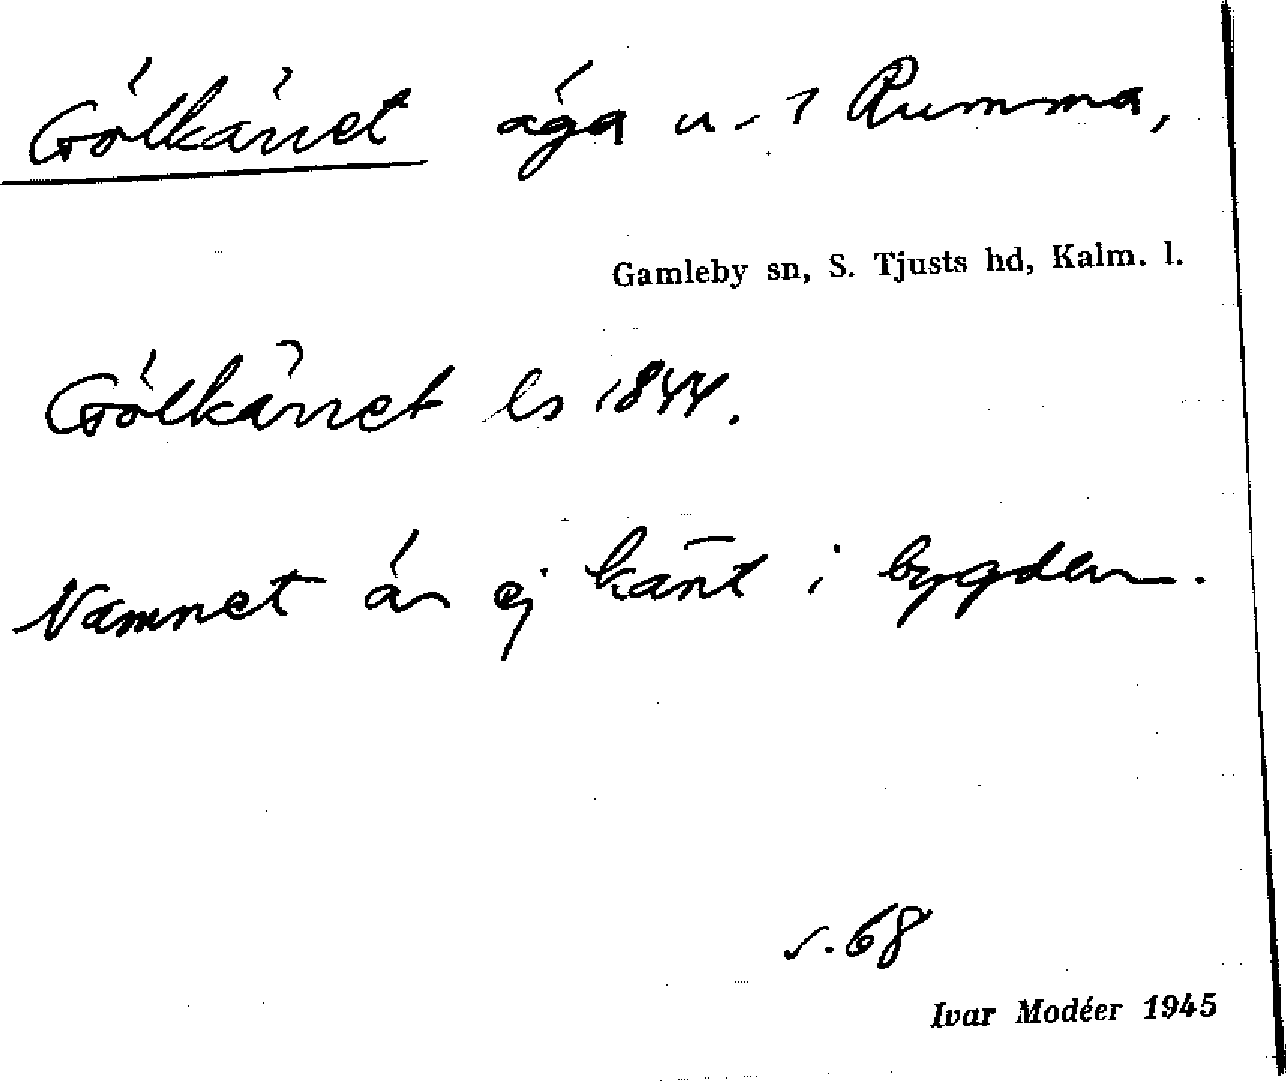 Gölkärret äga u. t Rumma,
Gamleby sn, S. Tjusts hd, Kalm. l.
Gölkärret ls 1844.
Namnet är ej känt i bygden.
s. 68
Ivar Modéer 1945